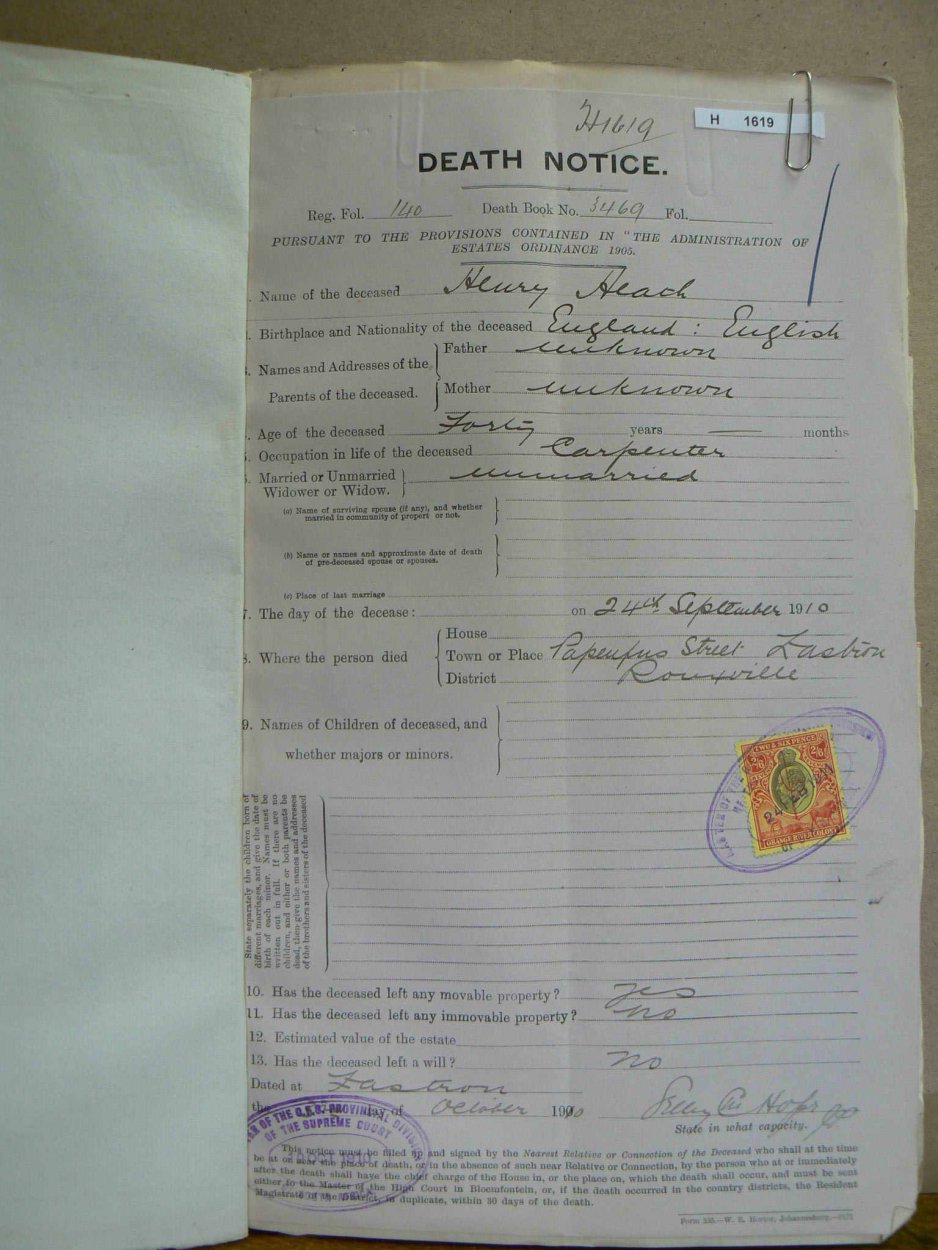 H1619
H 1619
DEATH NOTICE.
Reg. Fol. 140 Death Book No. 3469 Fol.
PURSUANT TO THE PROVISIONS CONTAINED IN "THE ADMINISTRATION OF
ESTATES ORDINANCE 1905.
. Name of the deceased Henry Heach
. Birthplace and Nationality of the deceased England : English
. Names and Addresses of the Parents of the deceased. Father unknown
Mother unknown
. Age of the deceased Forty years — months
. Occupation in life of the deceased Carpenter
. Married or Unmarried unmarried
Widower or Widow.
(a) Name of surviving spouse (if any), and whether
married in community of propert or not.
(b) Name or names and approximate date of death
of pre-deceased spouse or spouses.
(c) Place of last marriage
7. The day of the decease : on 24th September 1910
8. Where the person died House
Town or Place Papenfus Street Zastron
District Rouxville
9. Names of Children of deceased, and
whether majors or minors.
TWO & SIX PENCE
2/6 2/6
24 FEB
ORANGE RIVER COLONY
State separately the children born of
different marriages, and give the date of
birth of each minor. Names must be
written out in full. If there are no
children, and either or both parents be
dead, then give the names and addresses
of the brothers and sisters of the deceased
10. Has the deceased left any movable property? yes
11. Has the deceased left any immovable property? no
12. Estimated value of the estate
13. Has the deceased left a will? no
Dated at Zastron
the day of October 1910
State in what capacity.
OF THE O.F.S. PROVINCIAL DIVISION
OF THE SUPREME COURT
This notice must be filled up and signed by the Nearest Relative or Connection of the Deceased who shall at the time
be at or near the place of death, or in the absence of such near Relative or Connection, by the person who at or immediately
after the death shall have the chief charge of the House in, or the place on, which the death shall occur, and must be sent
either to the Master of the High Court in Bloemfontein, or, if the death occurred in the country districts, the Resident
Magistrate of the District, in duplicate, within 30 days of the death.
Form 335.—W. E. Hortor, Johannesburg.